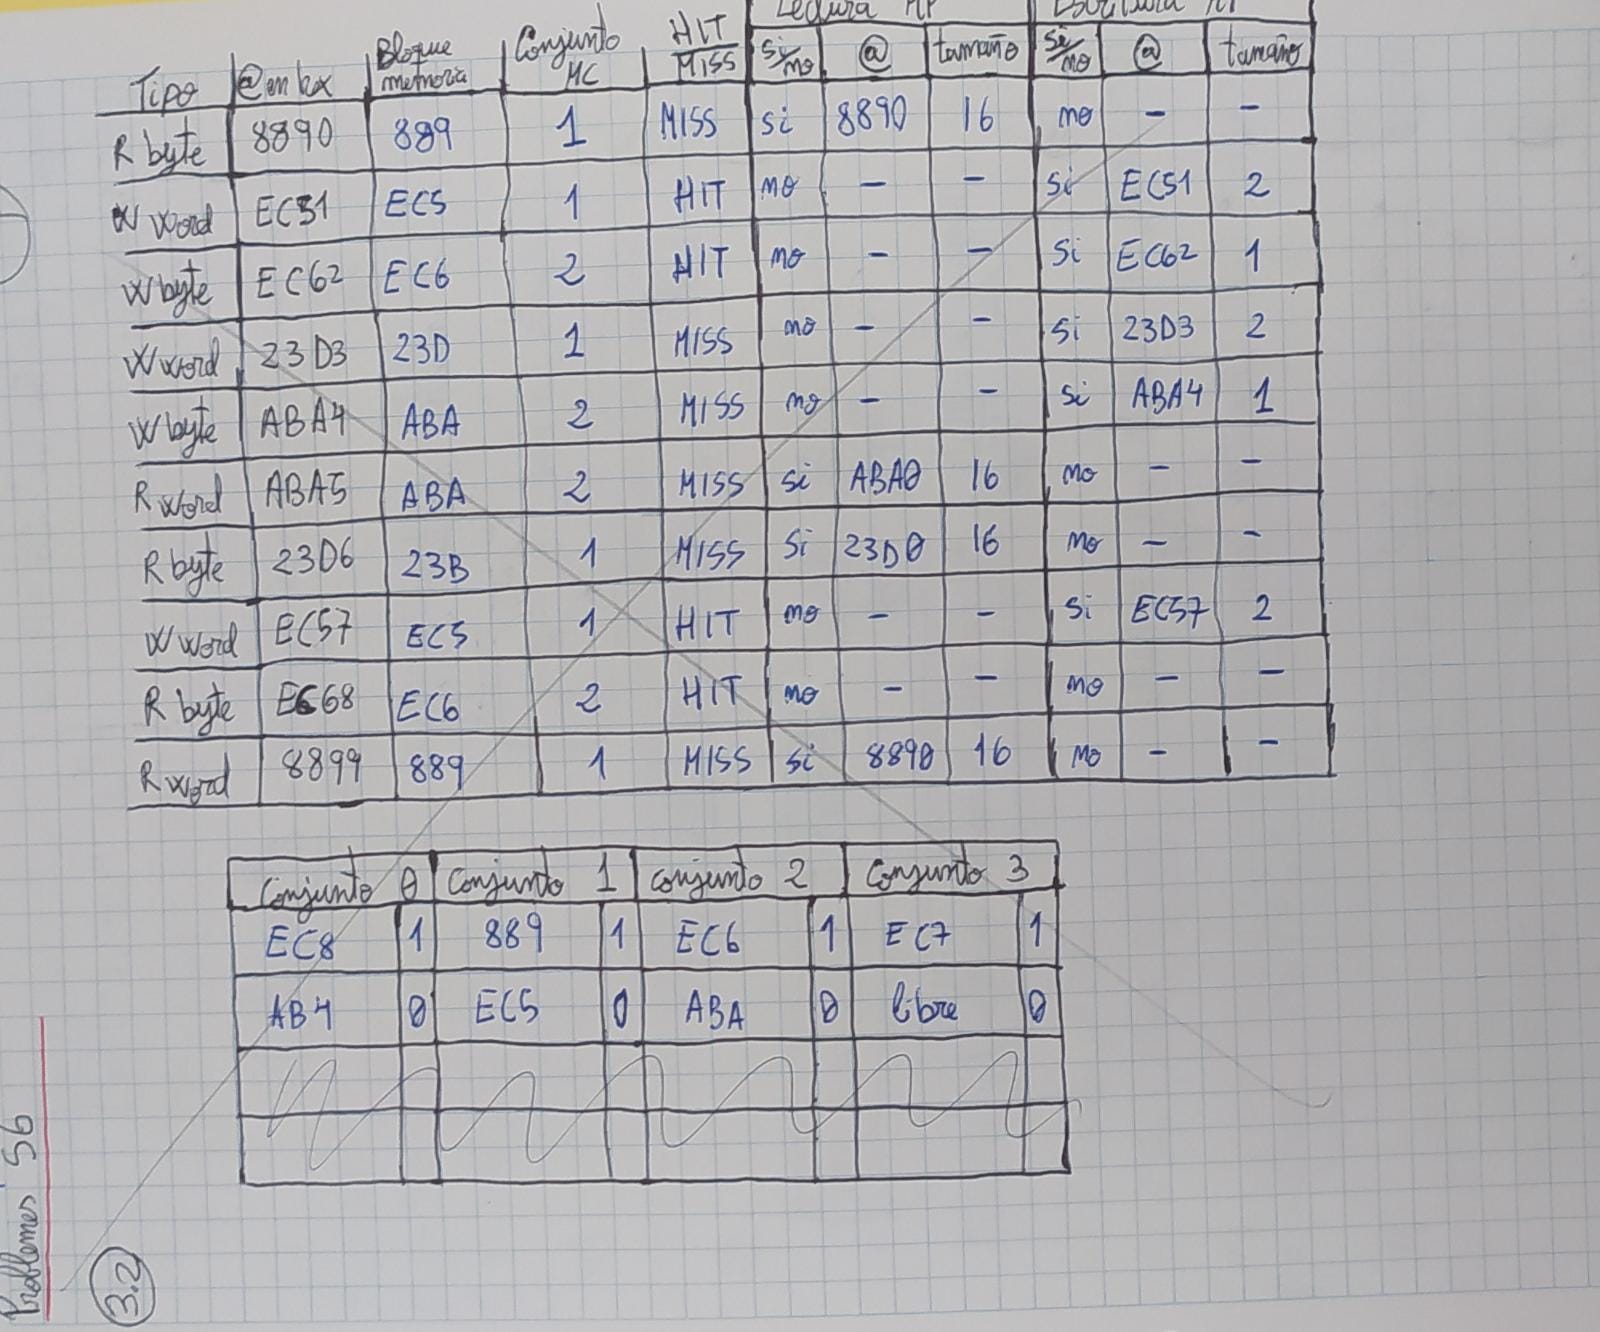 Lectura MP | Escritura MP
Tipo | @ en hex | Bloque memoria | Conjunto MC | HIT/MISS | si/no | @ | tamaño | si/no | @ | tamaño
R byte | 8890 | 889 | 1 | MISS | si | 8890 | 16 | no | - | -
W word | EC51 | EC5 | 1 | HIT | no | - | - | si | EC51 | 2
W byte | EC62 | EC6 | 2 | HIT | no | - | - | si | EC62 | 1
W word | 23D3 | 23D | 1 | MISS | no | - | - | si | 23D3 | 2
W byte | ABA4 | ABA | 2 | MISS | no | - | - | si | ABA4 | 1
R word | ABA5 | ABA | 2 | MISS | si | ABA0 | 16 | no | - | -
R byte | 23D6 | 23B | 1 | MISS | si | 23D0 | 16 | no | - | -
W word | EC57 | EC5 | 1 | HIT | no | - | - | si | EC57 | 2
R byte | EC68 | EC6 | 2 | HIT | no | - | - | no | - | -
R word | 8899 | 889 | 1 | MISS | si | 8890 | 16 | no | - | -
Conjunto 0 | Conjunto 1 | conjunto 2 | conjunto 3
EC8 | 1 | 889 | 1 | EC6 | 1 | EC7 | 1
AB4 | 0 | EC5 | 0 | ABA | 0 | libre | 0
Problemes S6
3.2